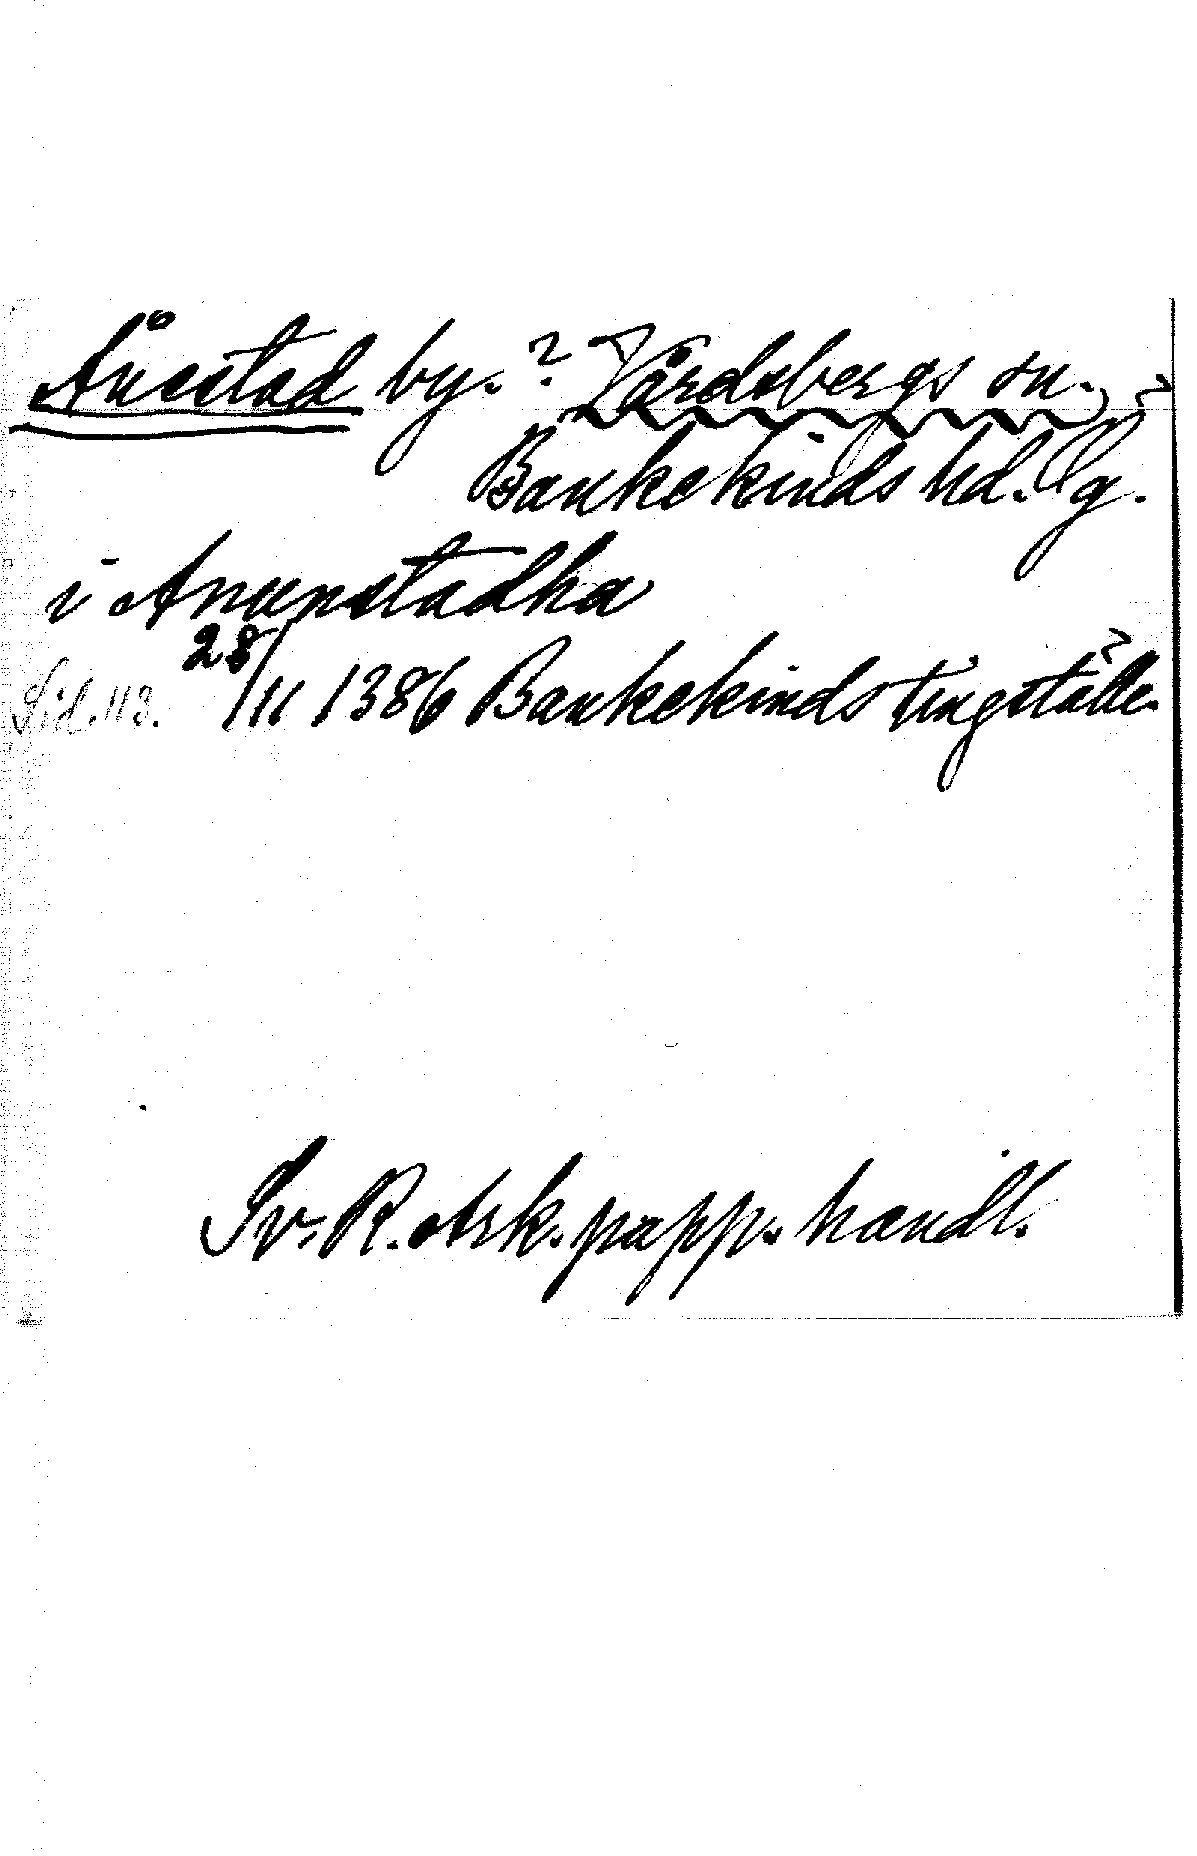 Ånestad by. ? Vårdsbergs sn. ?
Bankekinds hd. Ög.
i Anunstadha
Sid. 113. 28/11 1386 Bankekinds tingställe.
Sv. R. Ark. papp. handl.